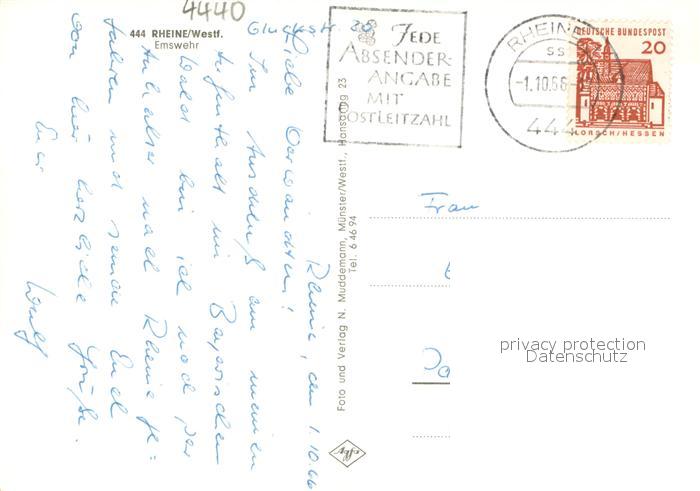 4440
444 RHEINE/Westf.
Emswehr
JEDE
ABSENDER-
ANGABE
MIT
POSTLEITZAHL
RHEINE
ss
-1.10.66-
444
DEUTSCHE BUNDESPOST
20
LORSCH/HESSEN
Rheine, den 1.10.66
Liebe Verwandten!
Im Anschluß an meinen
Aufenthalt im Bayrischen
Wald bin ich noch per
Anhalter nach Rheine ge=
fahren und sende Euch
von hier herzliche Grüße.
Euer
Wulf
Foto und Verlag N. Muddemann, Münster/Westf., Hansaring 23
Tel. 6 46 94
Agfa
Frau
privacy protection
Datenschutz